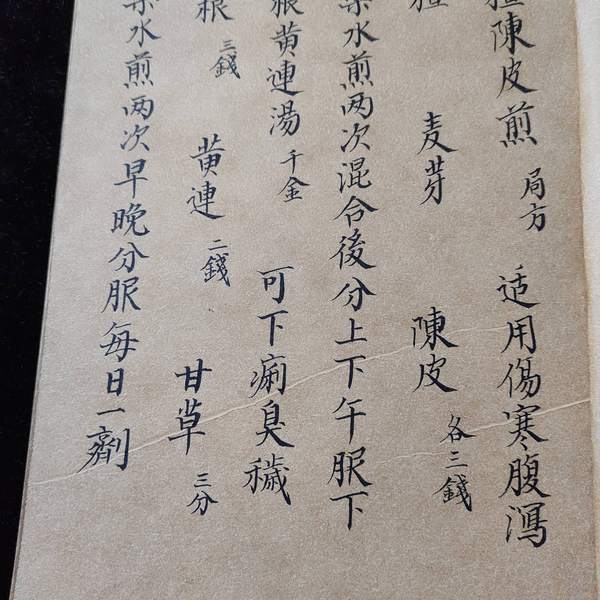 陳皮煎 局方 适用傷寒腹瀉
麦芽 陳皮 各三錢
水煎两次混合後分上下午服下
根黄連湯 千金 可下痢臭穢
根 三錢 黄連 二錢 甘草 三分
水煎两次早晚分服每日一劑